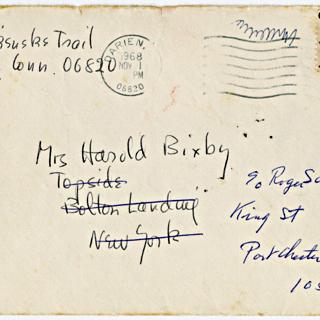 Trail
Conn. 06820
DARIEN,
1968
NOV 1
PM
06820
Mrs Harold Bixby
Topside
Bolton Landing
New York
c/o Roger
King St
Port Chester